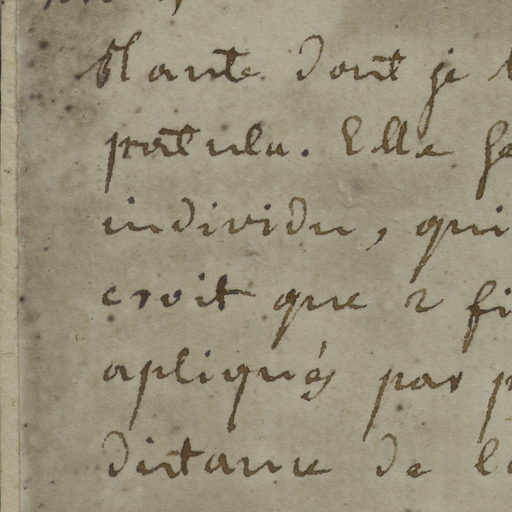 Plante dont je
patula. Elle
individu, qui
croit que 2
apliqués par
distance de